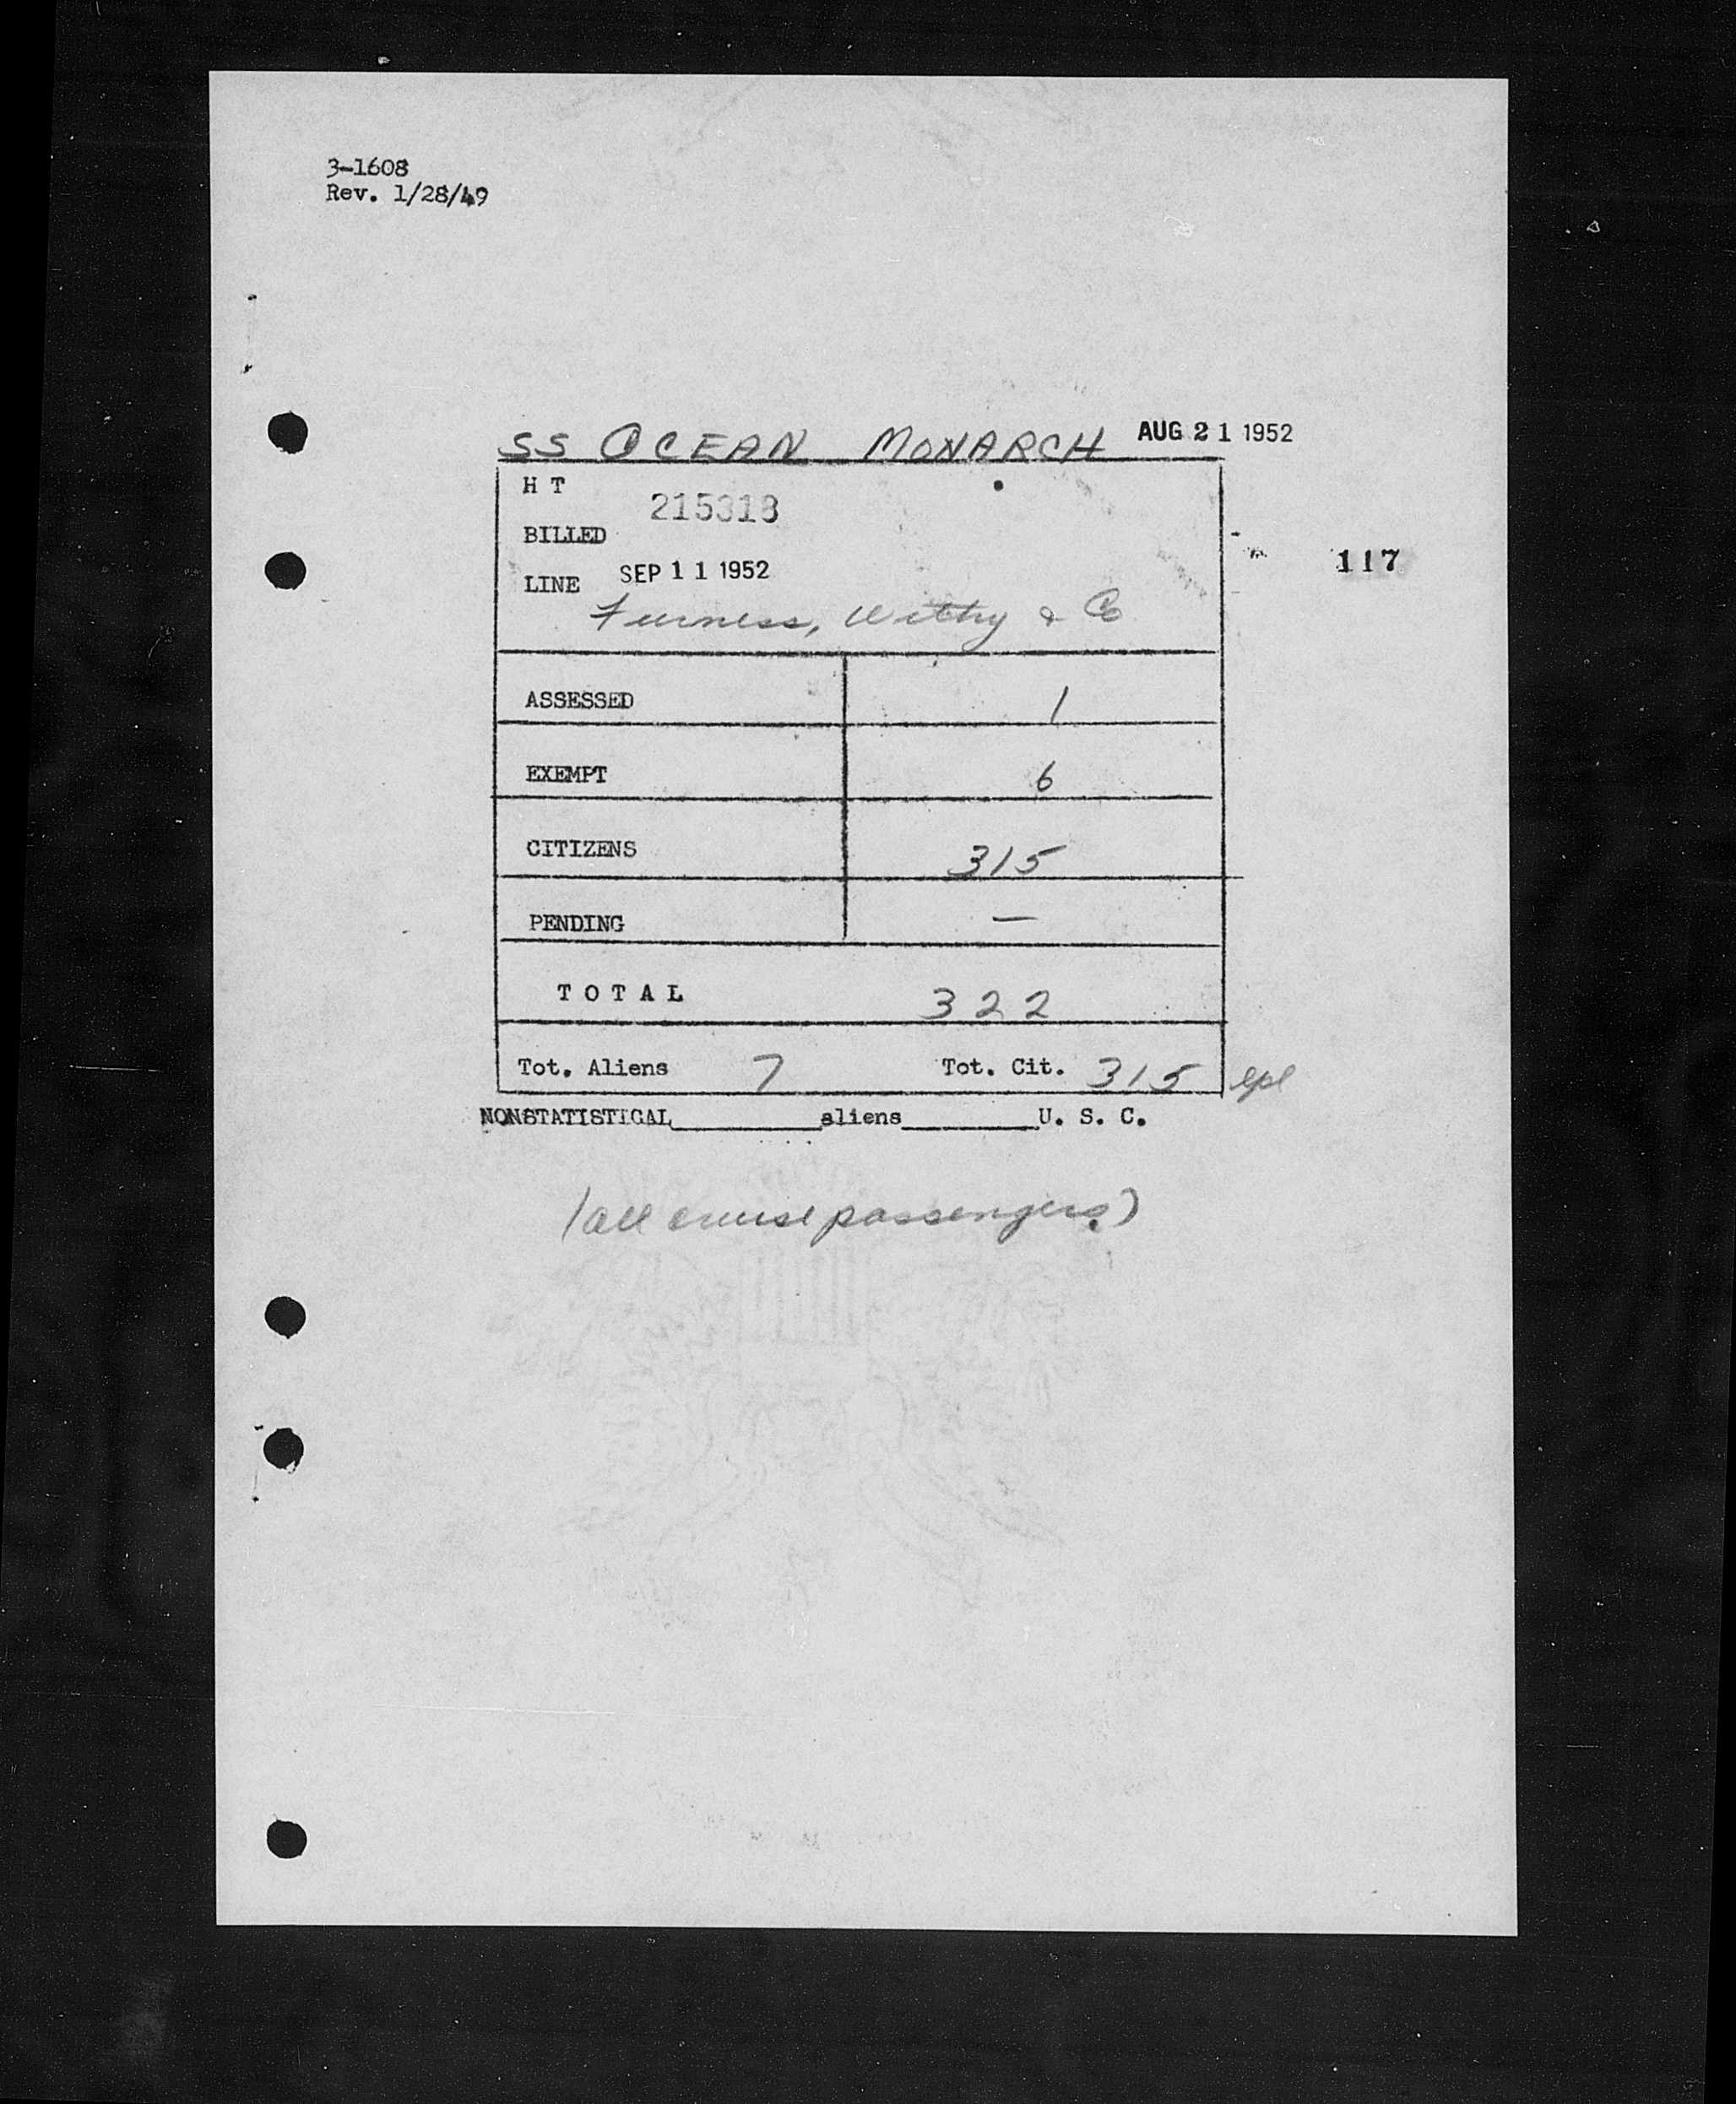 3-1608
Rev. 1/28/49
SS OCEAN MONARCH AUG 21 1952
H T
215318
BILLED
LINE SEP 11 1952
117
Furness, Withy & Co
ASSESSED 1
EXEMPT 6
CITIZENS 315
PENDING —
TOTAL 322
Tot. Aliens 7 Tot. Cit. 315
NONSTATISTICAL________aliens________U. S. C.
(all cruise passengers)